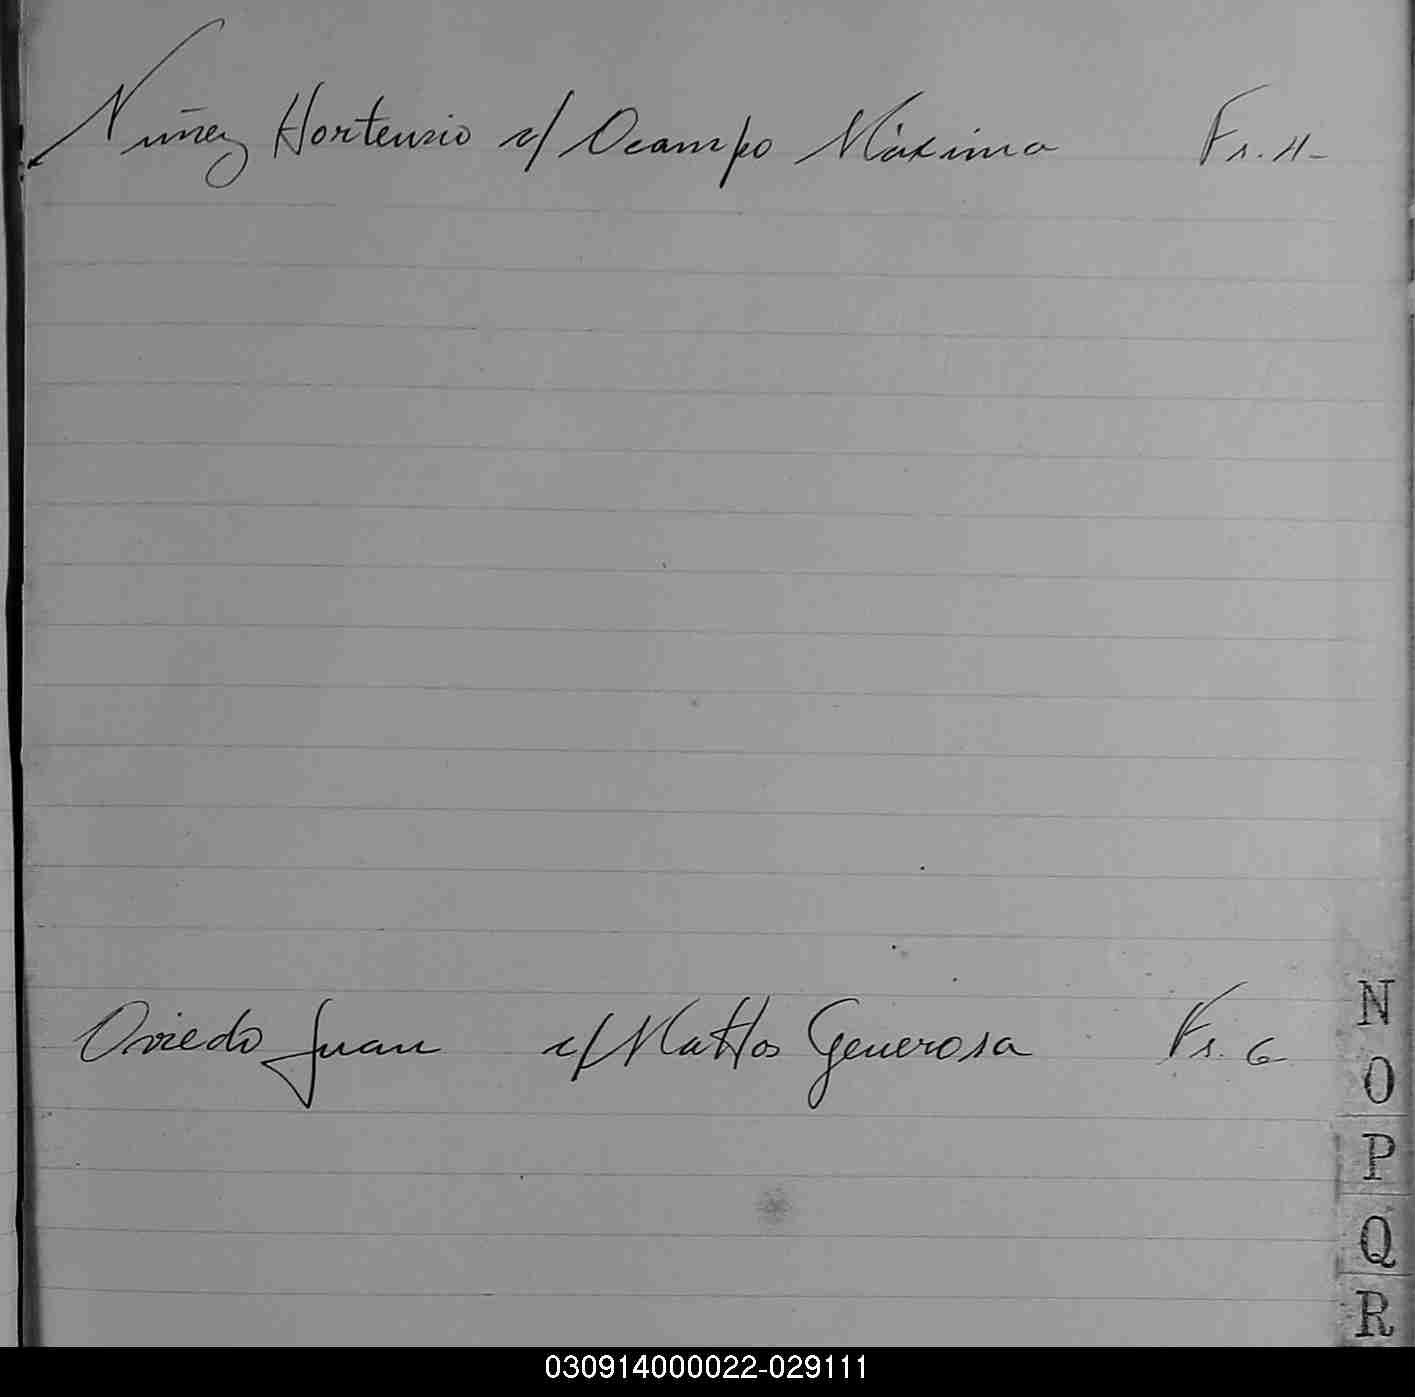 Nuñez Hortensio c/ Ocampo Máxima Fs. 4-
Oviedo Juan c/ Mattos Generosa Fs. 6
N
O
P
Q
R
030914000022-029111